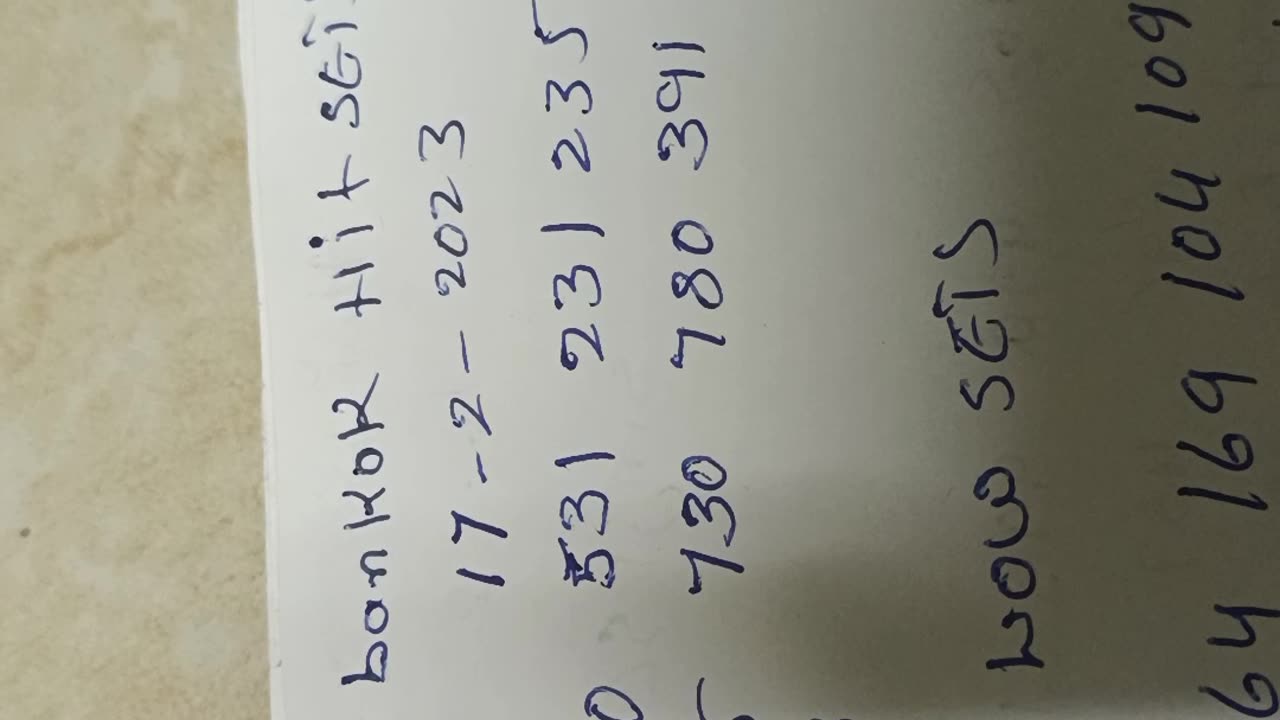 bankok Hit SET
17-2-2023
0 531 231 235
5 730 780 391
wow SETS
64 169 104 109